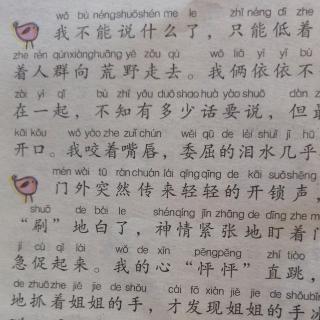 wǒ bù néngshuōshén me le zhǐ néng dī zhe
我不能说什么了，只能低着
zhe rén qúnxiànghuāng yě zǒu qù wǒ liǎ yī yī bù
着人群向荒野走去。我俩依依不
zài yì qǐ bù zhī yǒu duōshao huà yào shuō dàn z
在一起，不知有多少话要说，但最
kāi kǒu wǒ yǎo zhe zuǐ chún wěi qū de lèi shuǐ jī hū
开口。我咬着嘴唇，委屈的泪水几乎
mén wài tū rán chuán lái qīng qīng de kāi suǒ shēng
门外突然传来轻轻的开锁声，
shuā de bái le shénqíng jǐn zhāng de dīng zhe m
“刷”地白了，神情紧张地盯着门
jí cù qǐ lái wǒ de xīn pēngpēng zhí tiào
急促起来。我的心“怦怦”直跳，
de zhuā zhe jiě jie de shǒu cái fā xiàn jiě jie de shǒubīn
地抓着姐姐的手，才发现姐姐的手冰